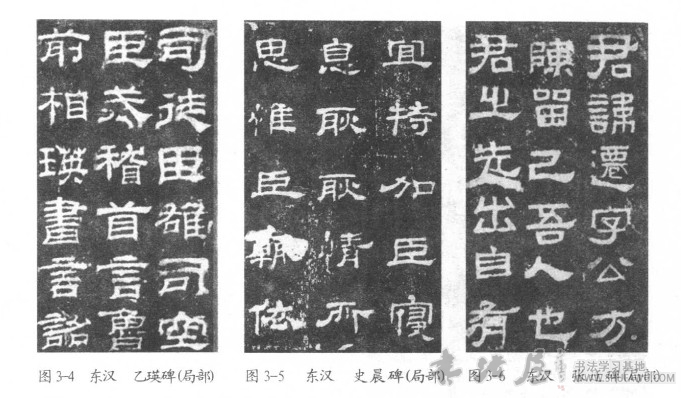 司徒臣雄司空
臣戒稽首言魯
前相瑛書言詔
图 3-4 东汉 乙瑛碑(局部)
宜特加臣寑
息耿耿情所
思惟臣輒依
图 3-5 东汉 史晨碑(局部)
君諱遷字公方
陳留己吾人也
君之先出自有
图 3-6 东汉 张迁碑(局部)
书法学习基地